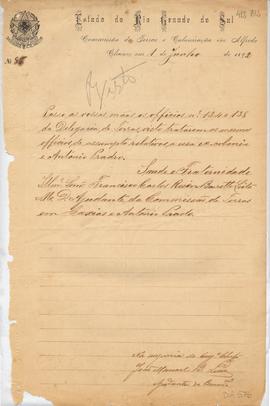 Estado do Rio Grande do Sul
Commissão de Terras e Colonisação em Alfredo
Chaves em 1 de Junho de 1892
Nº
Passo as vossas mãos os officios nº 134 e 138
da Delegacia de Terras, visto tratarem os mesmos
officios de assumpto relativo a essa ex-colonia
e Antonio Prado.
Saude e Fraternidade
Illmo Senr Francisco Carlos Barreto Leite
M. D. Ajudante da Commissão de Terras
em Caxias e Antonio Prado.
Na ausencia do Engº Chefe
João Manoel
Ajudante da